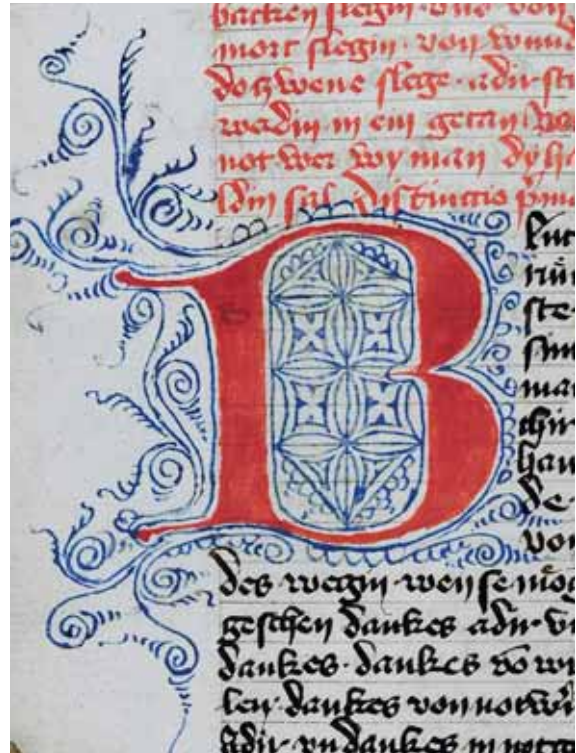 backen slegin vnd von
mort slegin · von wund
do zwene slege · adir sti
werdin in ein getan
not wer wy man dy ha
ldin sal Distinctio p̃ma
B
lut
nů
ste
sint
man
chir
hau
de
von
des wegin · wen se mog
geschen dankes adir vn
dankes · dankes vō wi
len · dankes von notwi
Adir · vn dankes in nott